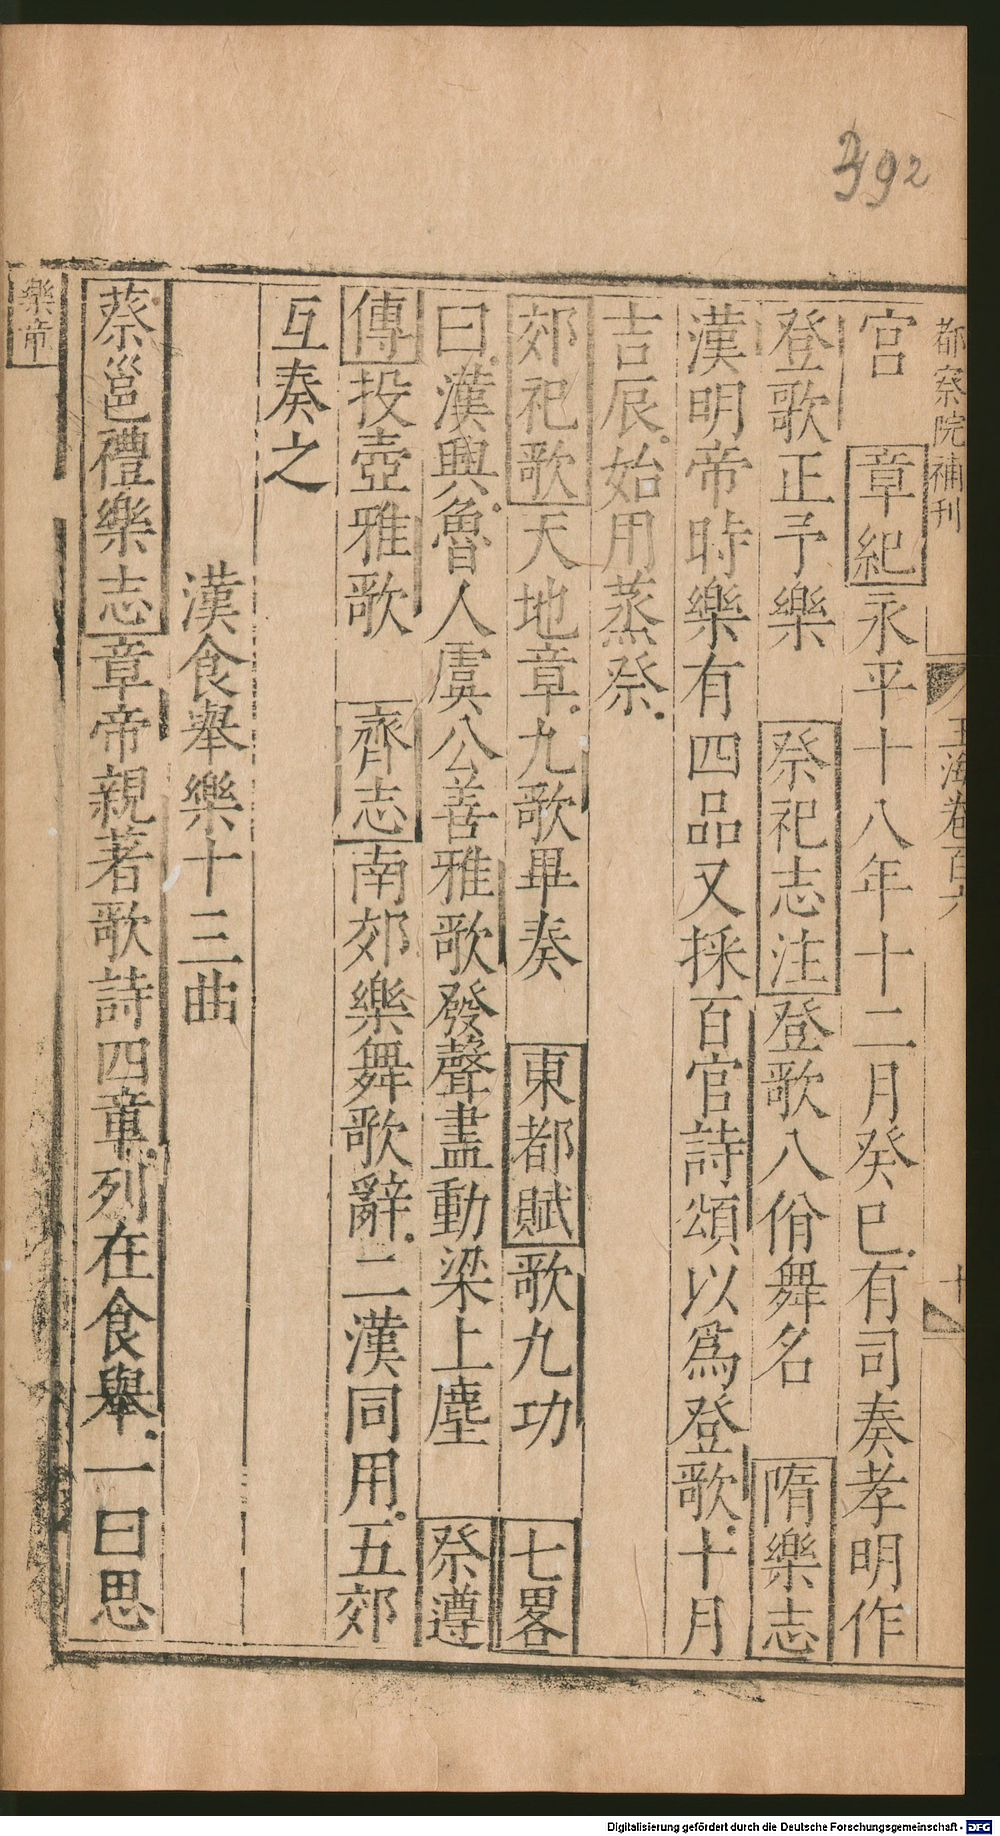 392
都察院補刊
玉海卷百六
宮　章紀永平十八年十二月癸巳有司奏孝明作
登歌正予樂　祭祀志注登歌八佾舞名　隋樂志
漢明帝時樂有四品又採百官詩頌以爲登歌十月
吉辰始用蒸祭
郊祀歌天地章九歌畢奏　東都賦歌九功　七畧
曰漢興魯人虞公善雅歌發聲盡動梁上塵　祭遵
傳投壺雅歌　齊志南郊樂舞歌辭二漢同用五郊
互奏之
漢食舉樂十三曲
蔡邕禮樂志章帝親著歌詩四章列在食舉一曰思
樂章
Digitalisierung gefördert durch die Deutsche Forschungsgemeinschaft - DFG